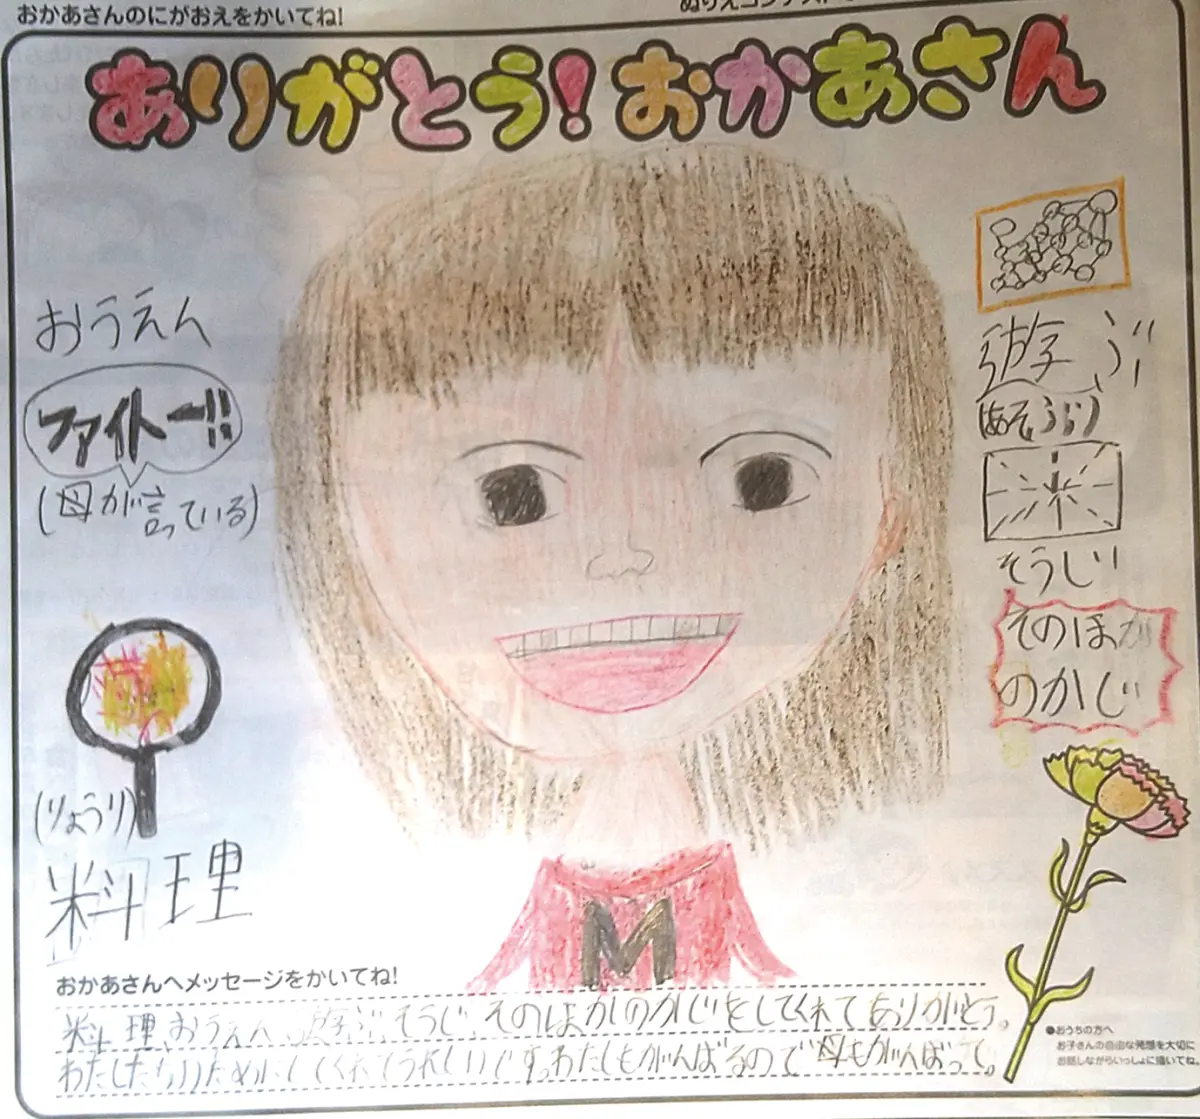 おかあさんのにがおえをかいてね!
ありがとう!おかあさん
おうえん
ファイトー!!
(母が言っている)
(りょうり)
料理
遊ぶ
(あそぶ)
そうじ
そのほか
のかじ
M
おかあさんへメッセージをかいてね!
料理、おうえん、遊ぶ、そうじ、そのほかのかじをしてくれてありがとう。
わたしたちのためにしてくれてうれしいです。わたしもがんばるので母もがんばって。
●おうちの方へ
お子さんの自由な発想を大切に
お話しながらいっしょに描いてね。